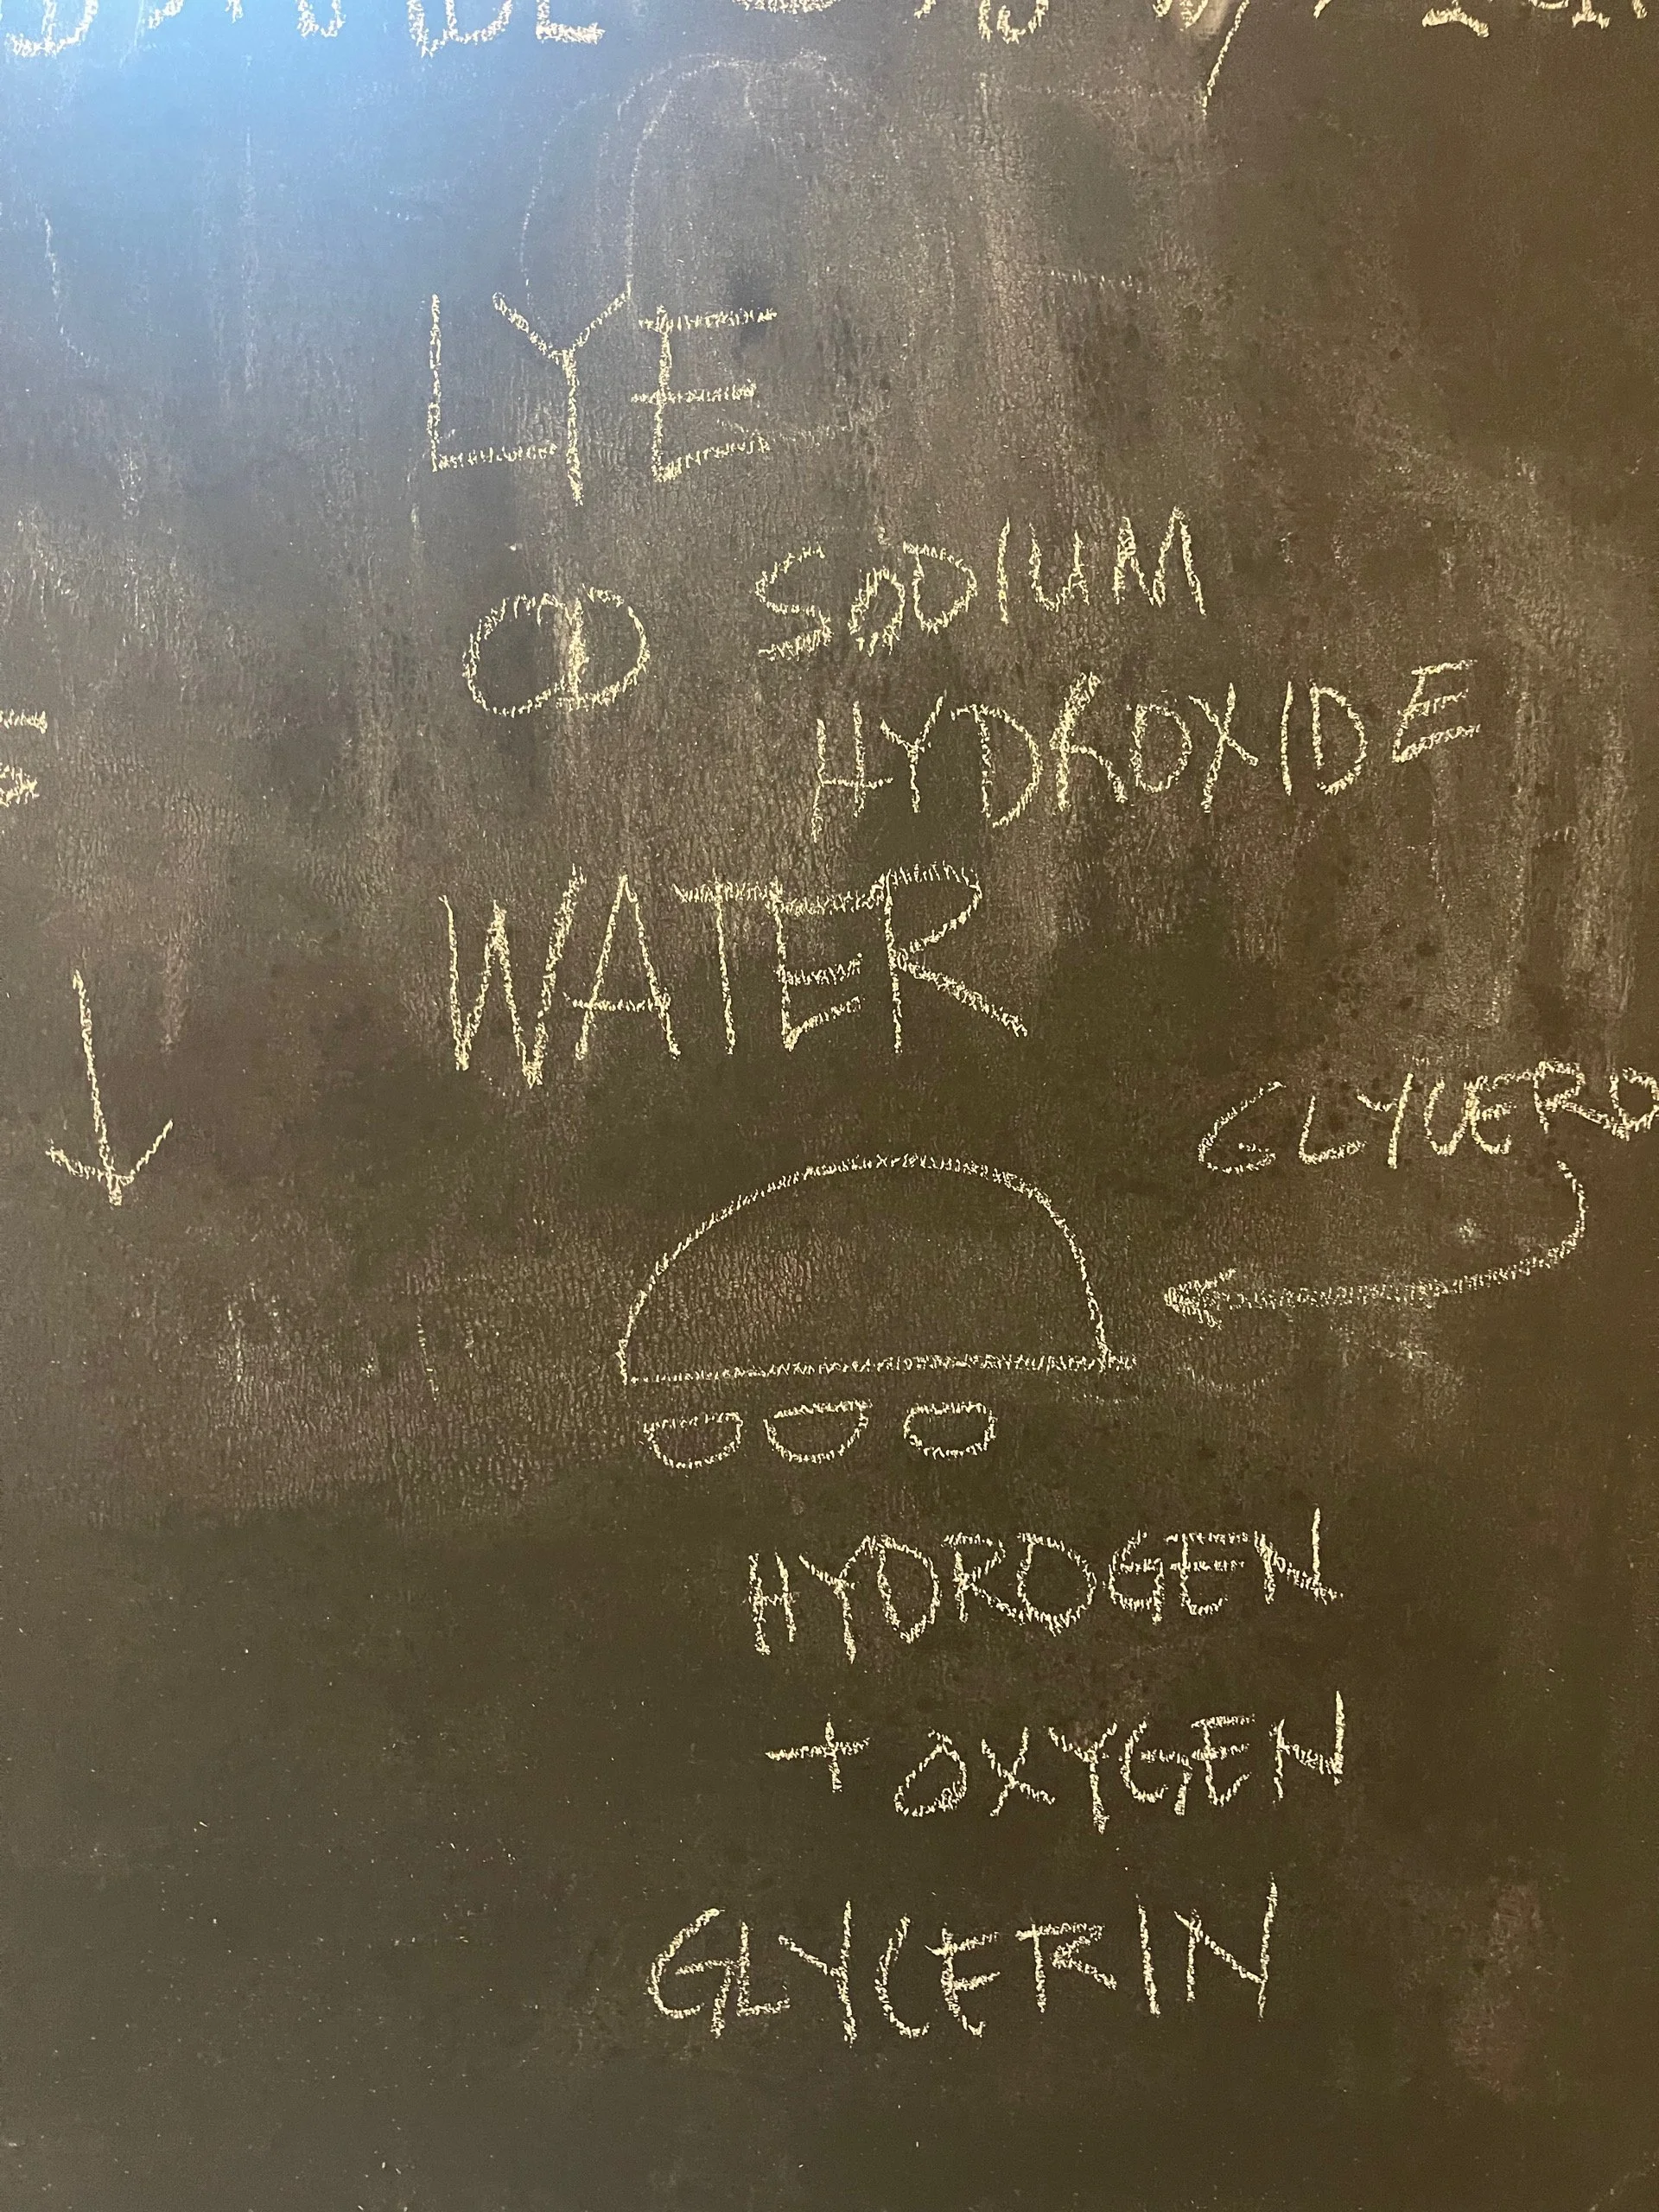 LYE
SODIUM
HYDROXIDE
WATER
GLYCERO
HYDROGEN
+ OXYGEN
GLYCERIN